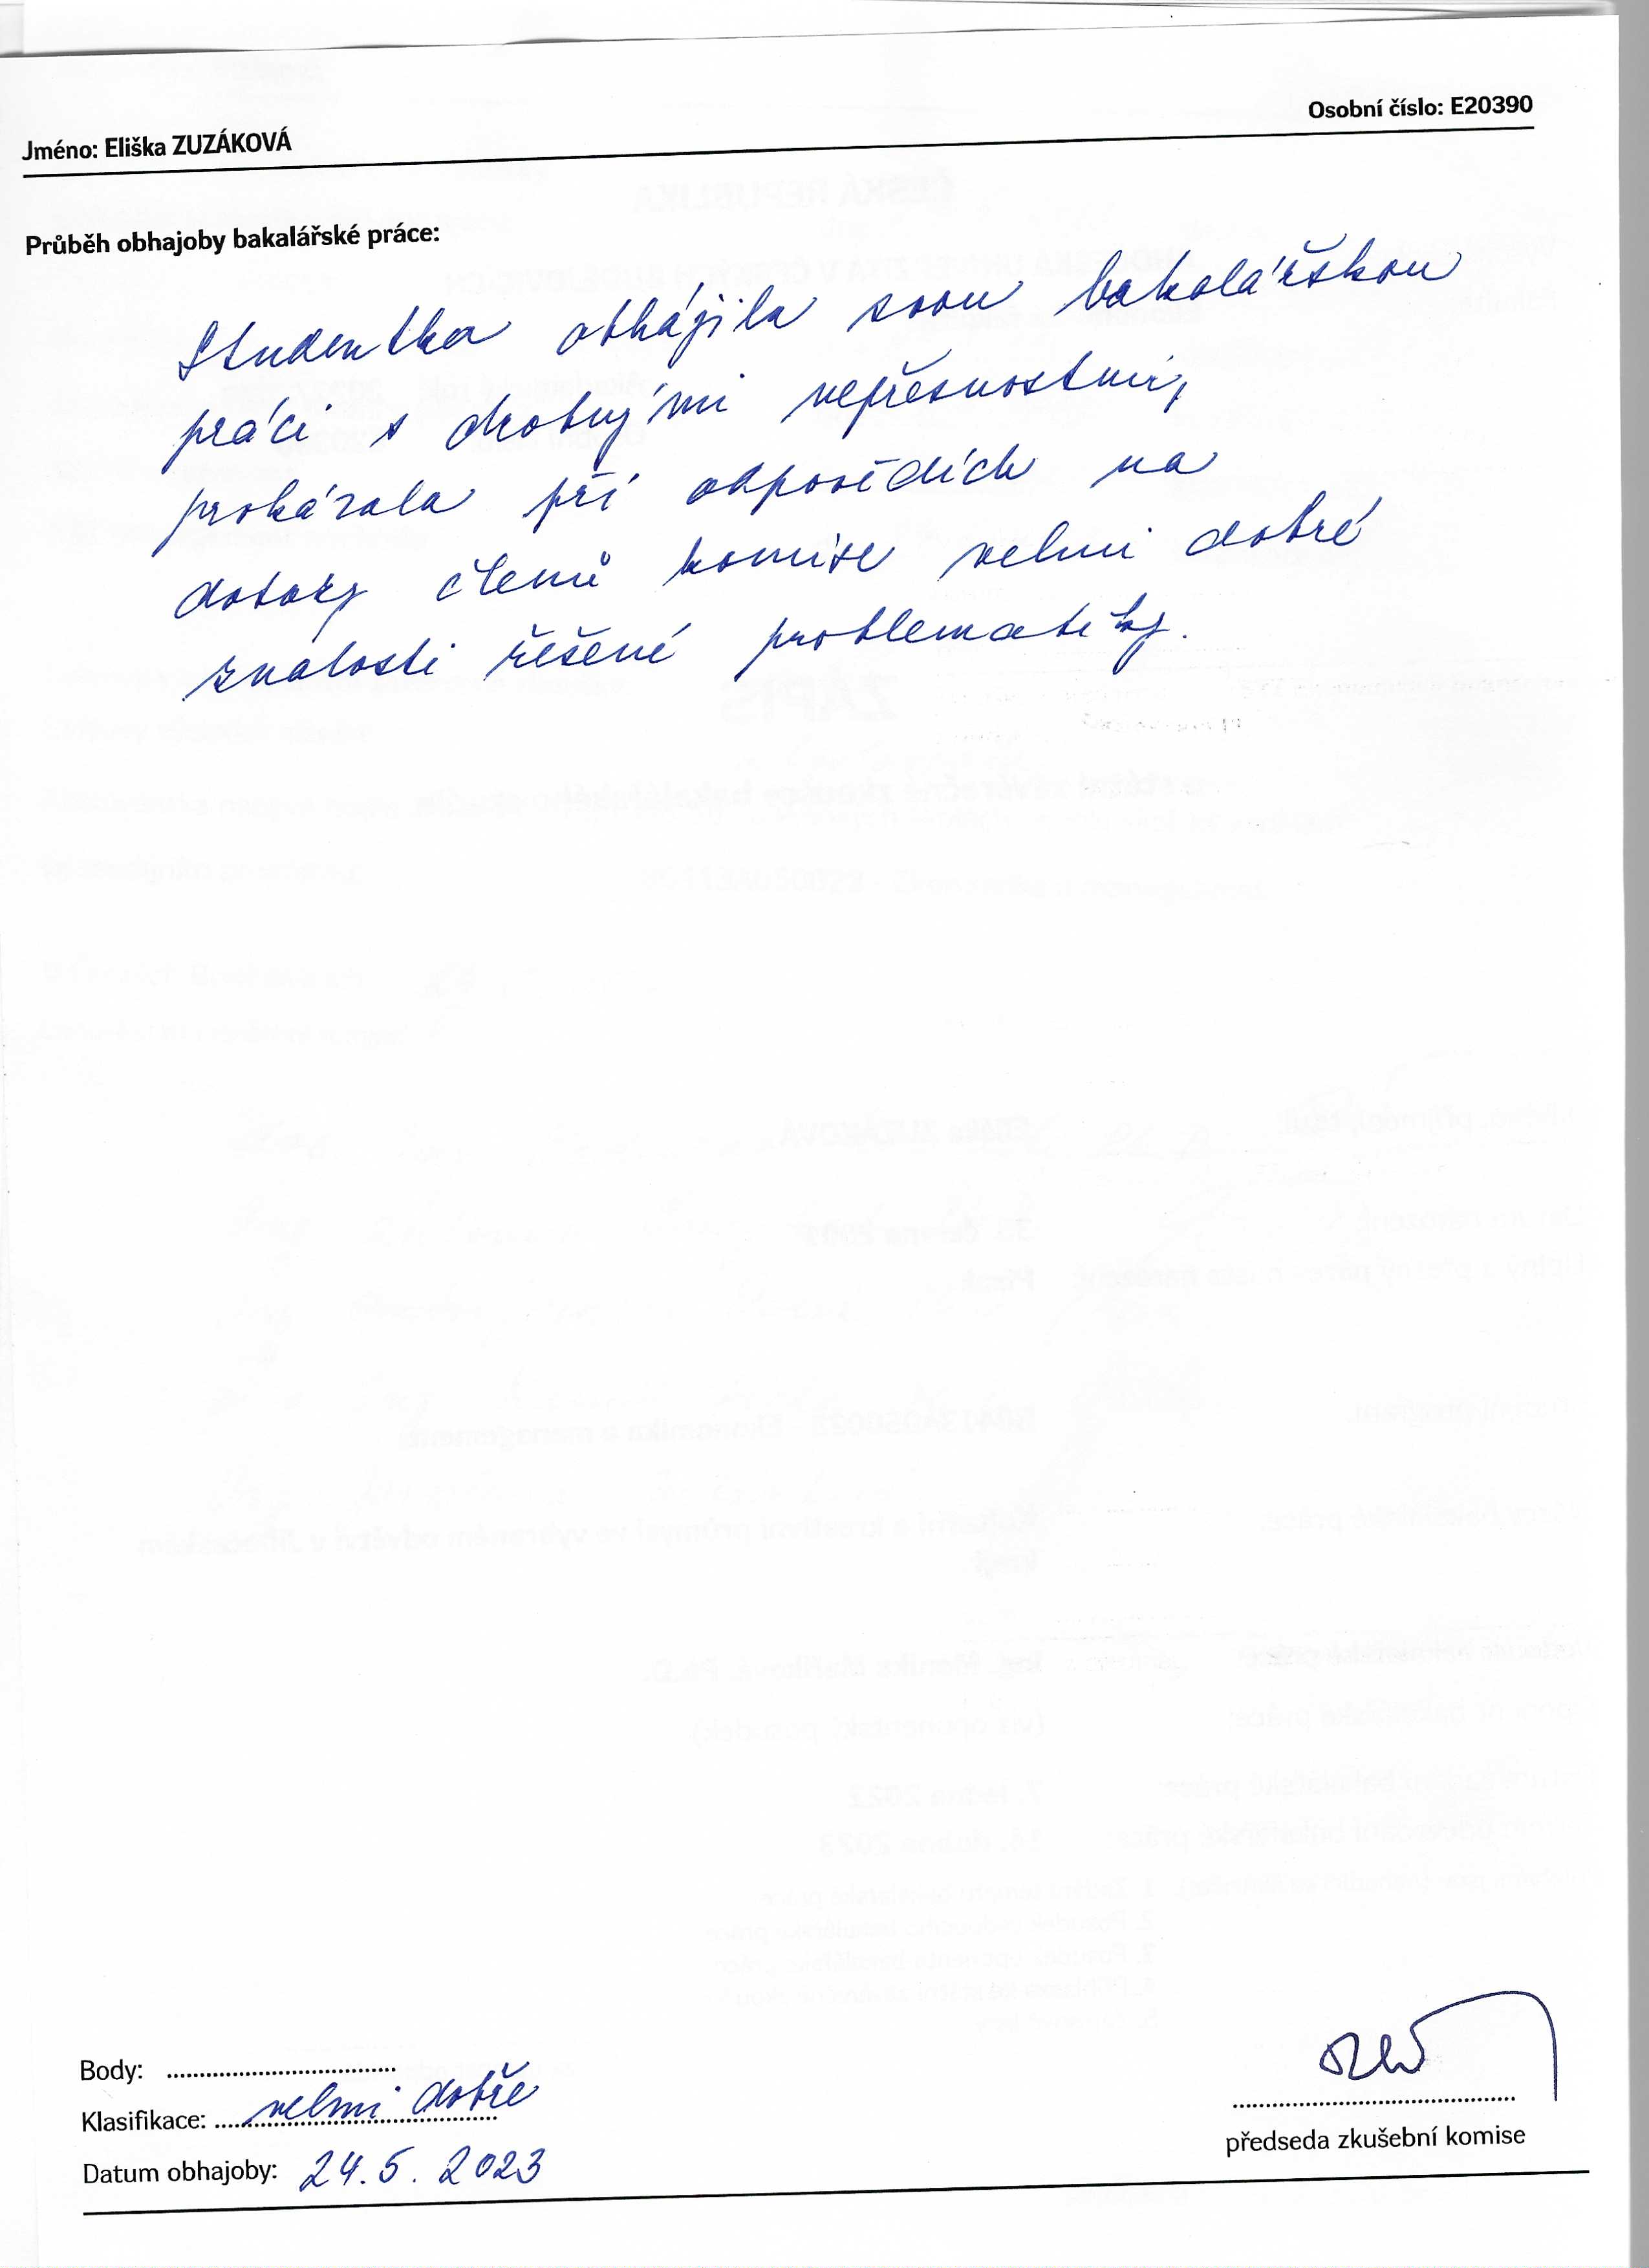 Osobní číslo: E20390
Jméno: Eliška ZUZÁKOVÁ
Průběh obhajoby bakalářské práce:
Studentka obhájila svou bakalářskou
práci s drobnými nepřesnostmi,
prokázala při odpovědích na
dotazy členů komise velmi dobré
znalosti řešené problematiky.
Body:
Klasifikace: velmi dobře
Datum obhajoby: 24.5.2023
předseda zkušební komise